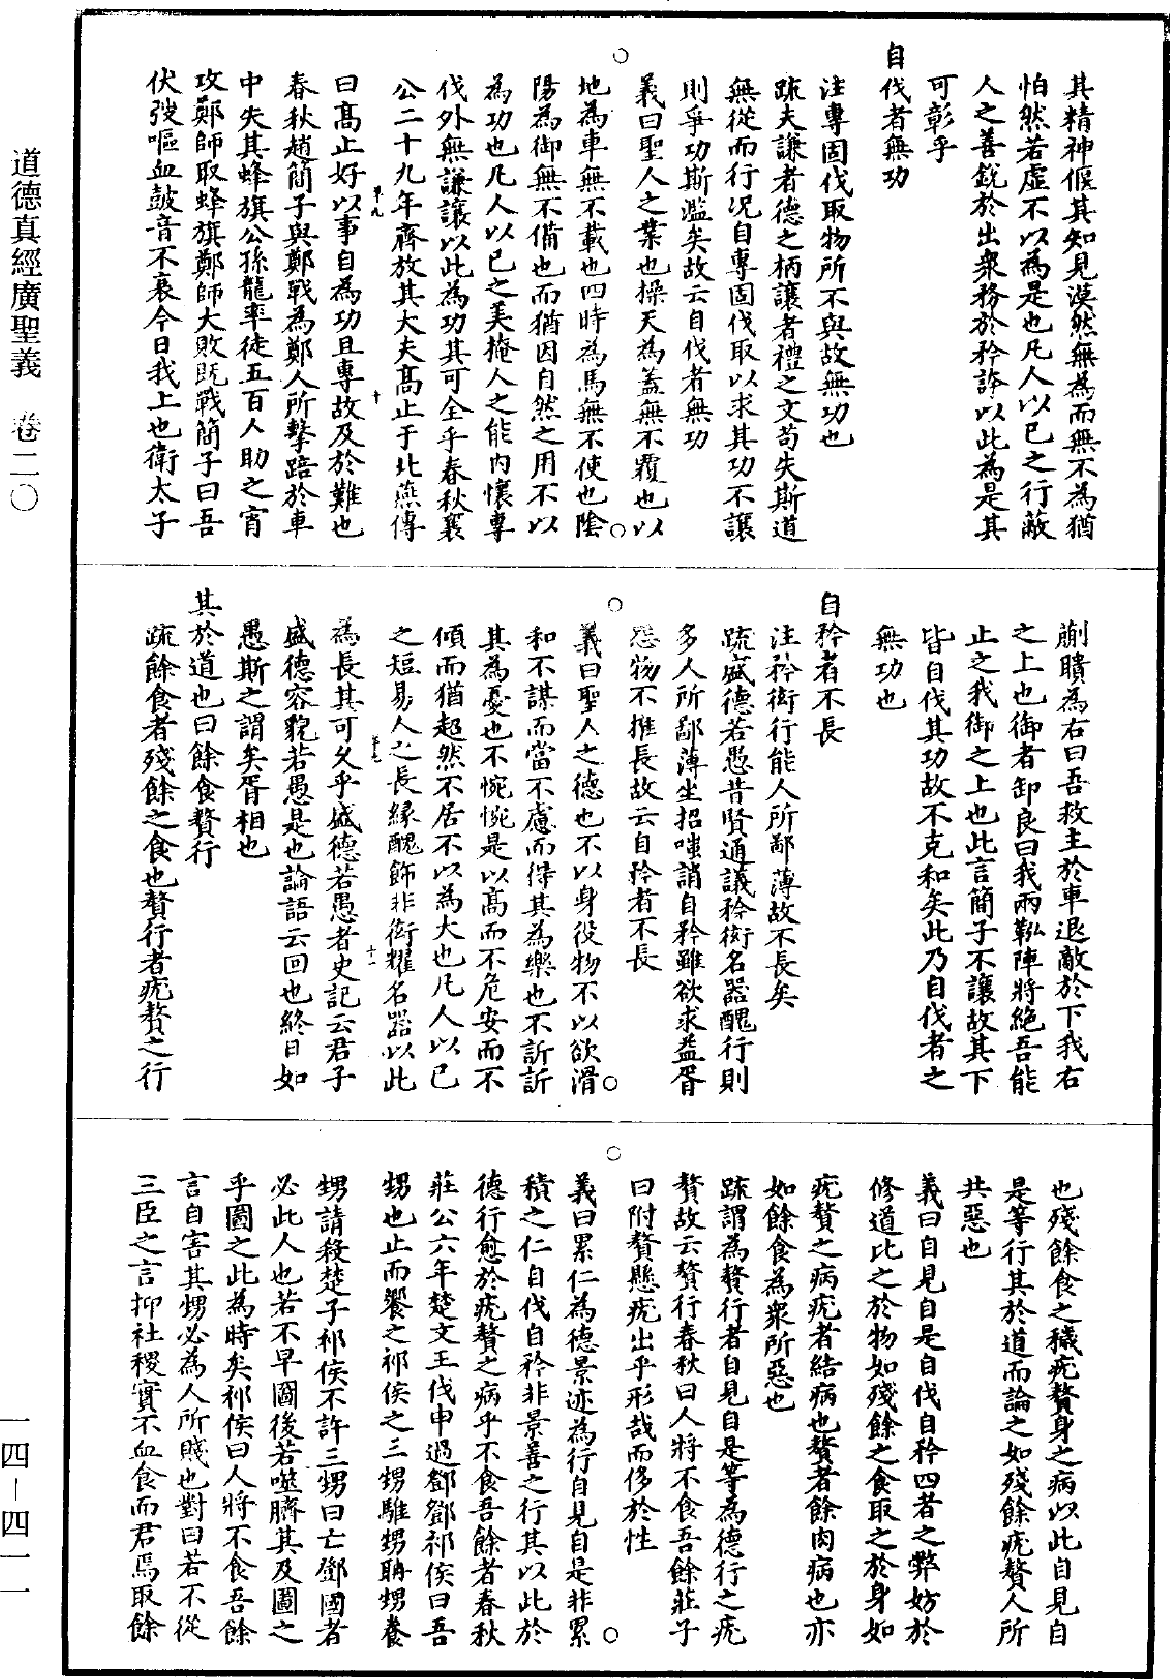 其精神偃其知見漠然無為而無不為猶
怕然若虛不以為是也凡人以已之行蔽
人之善銳於出衆務於矜誇以此為是其
可彰乎
自伐者無功
注專固伐取物所不與故無功也
疏夫謙者德之柄讓者禮之文苟失斯道
無從而行况自專固伐取以求其功不讓
則爭功斯濫矣故云自伐者無功
義曰聖人之業也操天為蓋無不覆也以
地為車無不載也四時為馬無不使也陰
陽為御無不備也而猶因自然之用不以
為功也凡人以已之美掩人之能內懷專
伐外無謙讓以此為功其可全乎春秋襄
公二十九年齊放其大夫高止于北燕傳
曰高止好以事自為功且專故及於難也
春秋趙簡子與鄭戰為鄭人所擊踣於車
中失其蜂旗公孫龍率徒五百人助之宵
攻鄭師取蜂旗鄭師大敗既戰簡子曰吾
伏弢嘔血鼓音不衰今日我上也衛太子
蒯聵為右曰吾救主於車退敵於下我右
之上也御者卸良曰我兩靷陣將絕吾能
止之我御之上也此言簡子不讓故其下
皆自伐其功故不克和矣此乃自伐者之
無功也
自矜者不長
注矜衒行能人所鄙薄故不長矣
疏盛德若愚昔賢通議矜衒名器醜行則
多人所鄙薄坐招嗤誚自矜雖欲求益胥
怨物不推長故云自矜者不長
義曰聖人之德也不以身役物不以欲滑
和不謀而當不慮而得其為樂也不訢訢
其為憂也不惋惋是以高而不危安而不
傾而猶超然不居不以為大也凡人以已
之短易人之長緣醜飾非衒耀名器以此
為長其可久乎盛德若愚者史記云君子
盛德容貌若愚是也論語云回也終日如
愚斯之謂矣胥相也
其於道也曰餘食贅行
疏餘食者殘餘之食也贅行者疣贅之行
也殘餘食之穢疣贅身之病以此自見自
是等行其於道而論之如殘餘疣贅人所
共惡也
義曰自見自是自伐自矜四者之弊妨於
修道比之於物如殘餘之食取之於身如
疣贅之病疣者結病也贅者餘肉病也亦
如餘食為衆所惡也
疏謂為贅行者自見自是等為德行之疣
贅故云贅行春秋曰人將不食吾餘莊子
曰附贅懸疣出乎形哉而侈於性
義曰累仁為德景迹為行自見自是非累
積之仁自伐自矜非景善之行其以此於
德行愈於疣贅之病乎不食吾餘者春秋
莊公六年楚文王伐申過鄧鄧祁侯曰吾
甥也止而饗之祁侯之三甥騅甥聃甥養
甥請殺楚子祁侯不許三甥曰亡鄧國者
必此人也若不早圖後君噬臍其及圖之
乎圖之此為時矣祁侯曰人將不食吾餘
言自害其甥必為人所賤也對曰若不從
三臣之言抑社稷實不血食而君焉取餘
道德真經廣聖義　卷二〇
一四—四一一